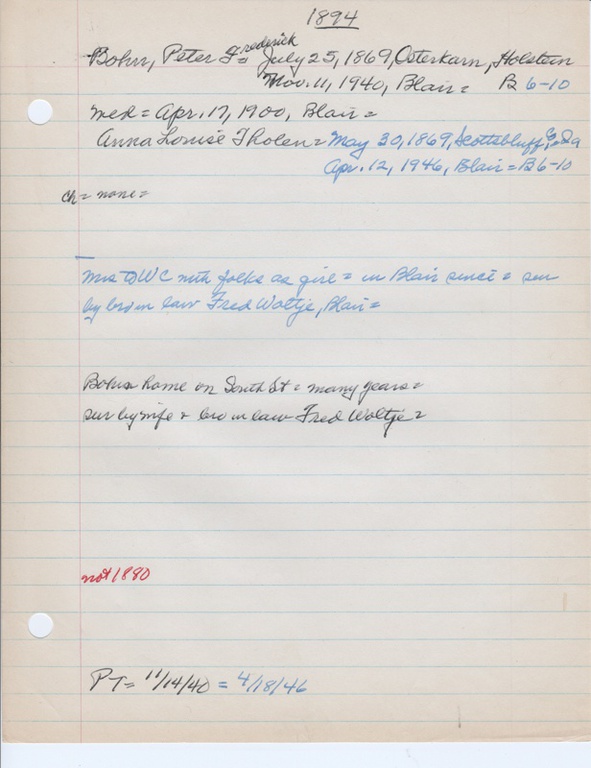 1894
Bohn, Peter Frederick = July 25, 1869, Osterkarn, Holstein
Nov. 11, 1940, Blair = B 6-10
med = Apr. 17, 1900, Blair =
Anna Louise Tholen = May 30, 1869, Scottsbluff, Ia
Apr. 12, 1946, Blair = B 6-10
ch = none =
Mrs to WC with folks as girl = in Blair since = sur
by bro in law Fred Woltje, Blair =
Bohn home on South St = many years =
sur by wife = bro in law Fred Woltje =
not 1880
PT = 11/14/40 = 4/18/46